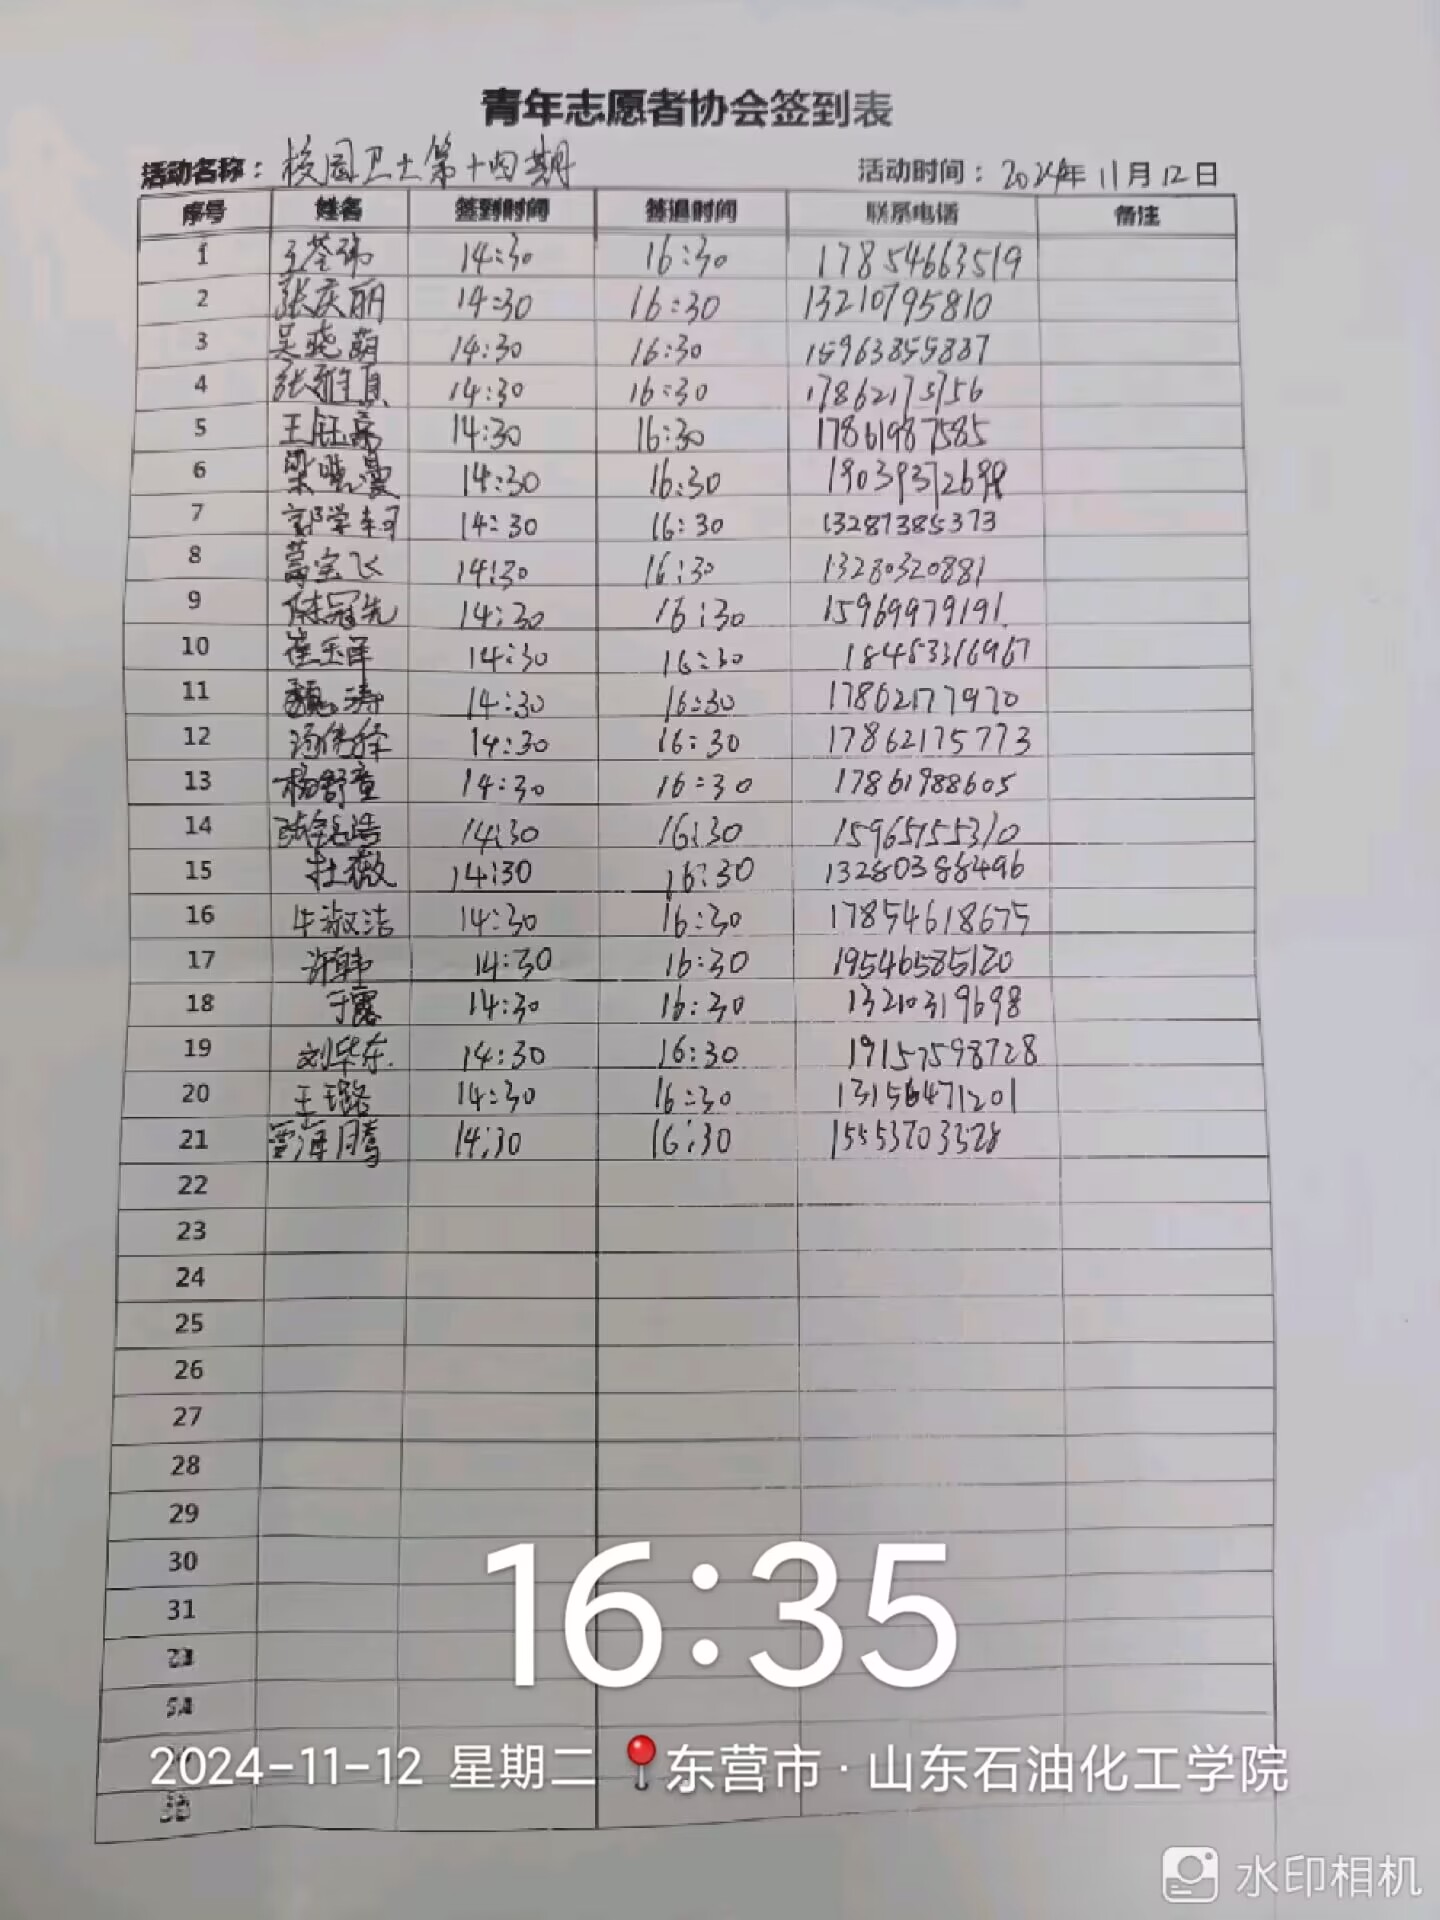 青年志愿者协会签到表
活动名称：校园卫士第十四期 活动时间：2024年11月12日
序号 姓名 签到时间 签退时间 联系电话 备注
1 14:30 16:30 17854663519
2 张庆丽 14:30 16:30 13210795810
3 吴晓萌 14:30 16:30 15963855887
4 张雅真 14:30 16:30 17862175756
5 王钰亮 14:30 16:30 17861987585
6 梁晓曼 14:30 16:30
7 郭学轲 14:30 16:30 13287385373
8 葛宝飞 14:30 16:30 13280320881
9 陈冠先 14:30 16:30 15969979191
10 崔玉泽 14:30 16:30 18453316967
11 魏涛 14:30 16:30 17862177970
12 14:30 16:30 17862175773
13 杨舒童 14:30 16:30 17861988605
14 14:30 16:30 15965155310
15 杜薇 14:30 16:30 13280388496
16 牛淑洁 14:30 16:30 17854618675
17 许韩 14:30 16:30 19546585120
18 于露 14:30 16:30 13210319698
19 刘华东 14:30 16:30 19157598728
20 王璐 14:30 16:30 13156471201
21 贾海腾 14:30 16:30 15553703328
22
23
24
25
26
27
28
29
30
31
16:35
2024-11-12 星期二 东营市·山东石油化工学院
水印相机